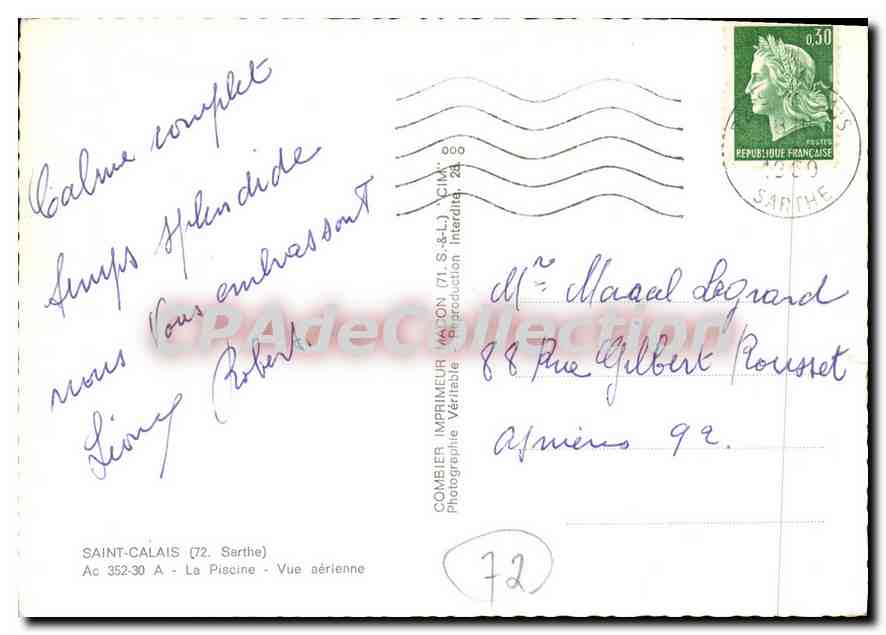 Calme complet
temps splendide
nous vous embrassont
Léony Robert.
SAINT-CALAIS (72. Sarthe)
Ac 352-30 A - La Piscine - Vue aérienne
COMBIER IMPRIMEUR MACON (71. S.-&-L.) "CIM"
Photographie Véritable - Reproduction Interdite. 28.
0,30
POSTES
REPUBLIQUE FRANÇAISE
SARTHE
Mr Marcel Legrard
88 Rue Gilbert Rousset
Asnières 92.
72
CPAdeCollection